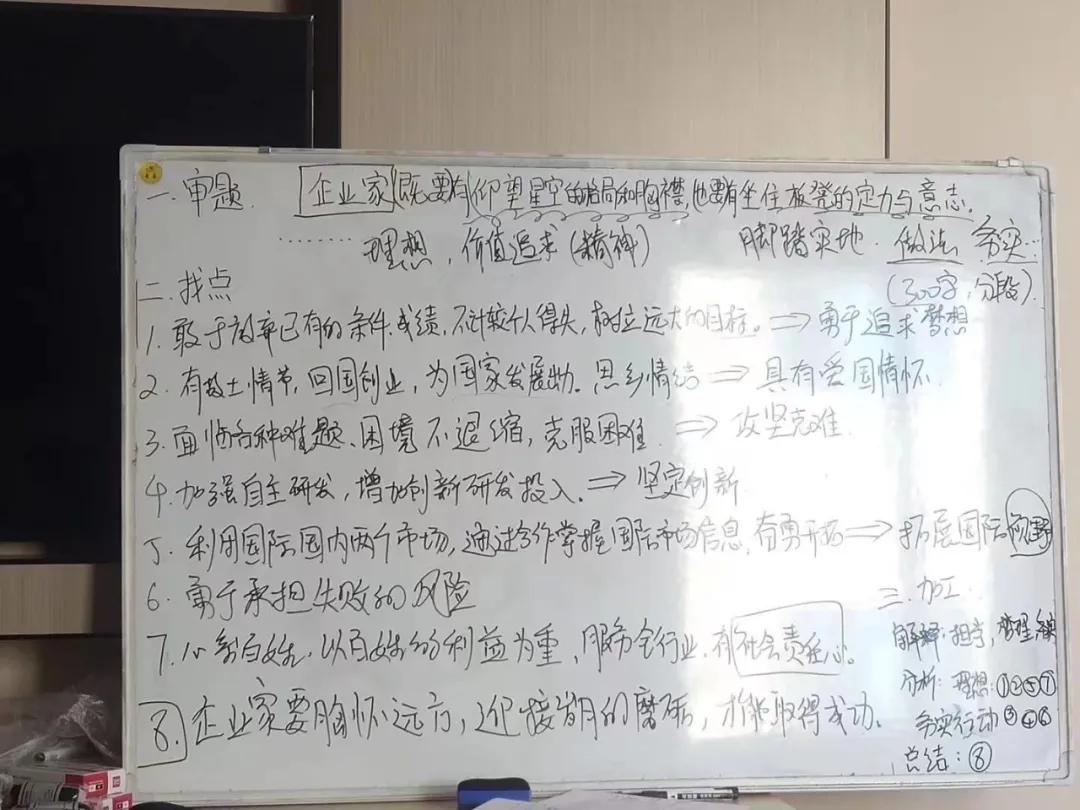 一.审题. 企业家(既要有)仰望星空的格局和胸襟,也要有坐住板凳的定力与意志.
........ 理想,价值追求(精神) 脚踏实地.做法 务实...
(300字,分段)
二.找点
1.敢于放弃已有的条件、成绩,不计较个人得失,树立远大的目标。⇒勇于追求梦想
2.有故土情节,回国创业,为国家发展助力.思乡情结⇒具有爱国情怀.
3.面临各种难题、困境不退缩,克服困难.⇒攻坚克难.
4.加强自主研发,增加创新研发投入.⇒坚定创新
5.利用国际国内两个市场,通过合作掌握国际市场信息,有勇开拓⇒拓展国际视野
6.勇于承担失败的风险
7.心系百姓,以百姓的利益为重,服务全行业,有社会责任心。
8.企业家要胸怀远方,迎接岁月的磨砺,才能取得成功.
三.加工.
解释:相当,
分析:理想:①②⑤⑦
务实行动③④⑥
总结:⑧